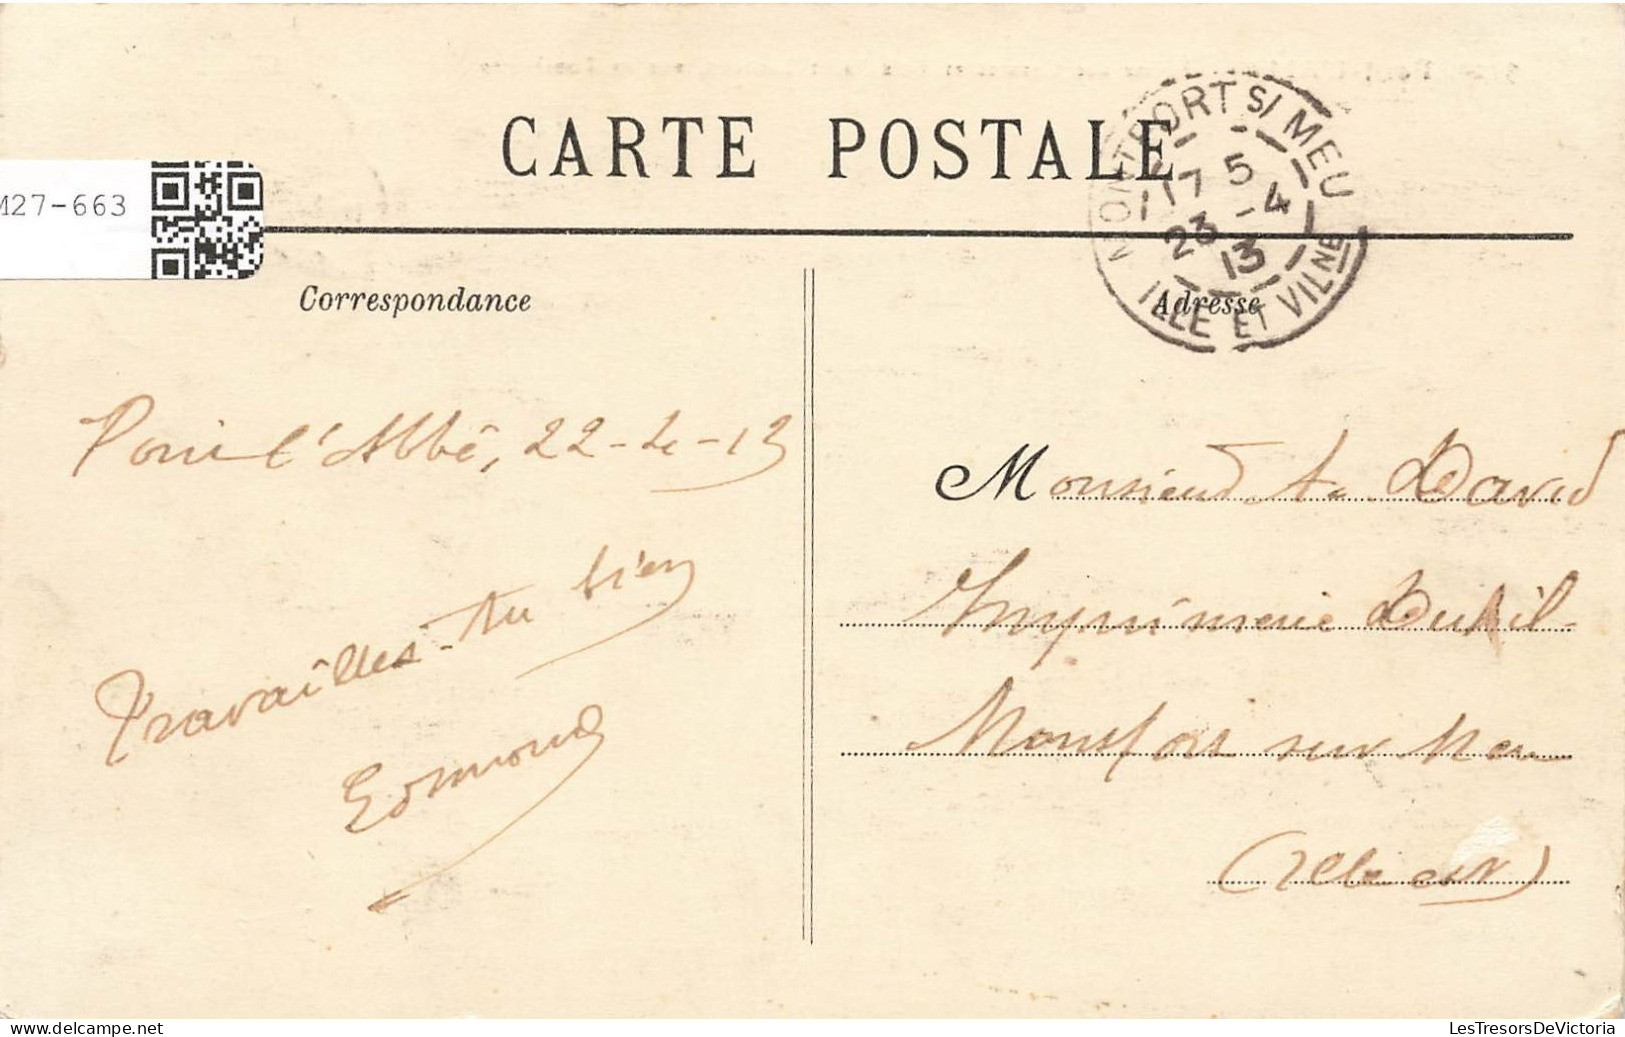 CARTE POSTALE
MONTFORT S/ MEU
17 5
23 - 4
13
ILLE ET VILNE
M27-663
Correspondance
Adresse
Pont l'Abbé, 22-4-13
Travailles-tu bien
Edmond
Monsieur A. David
Imprimerie
Montfort sur Meu
(Ille et V)
LesTresorsDeVictoria
https://www.delcampe.net